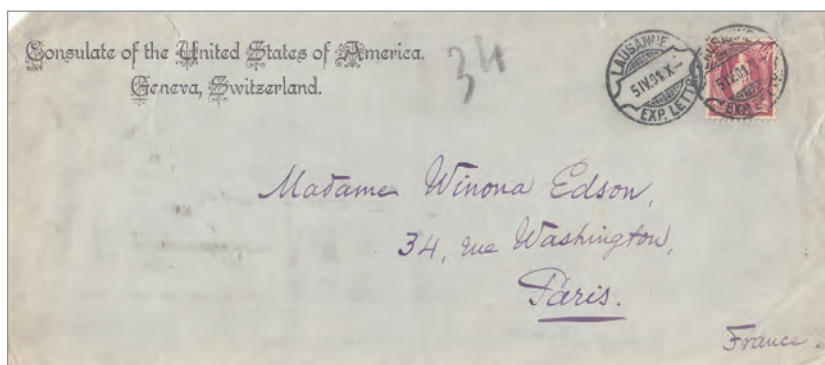 Consulate of the United States of America.
Geneva, Switzerland.
34
LAUSANNE
5.IV.01.X
EXP. LETTR
LAUSANNE
5.IV.01
EXP. LETTR
Madame Winona Edson,
34, rue Washington,
Paris.
France.